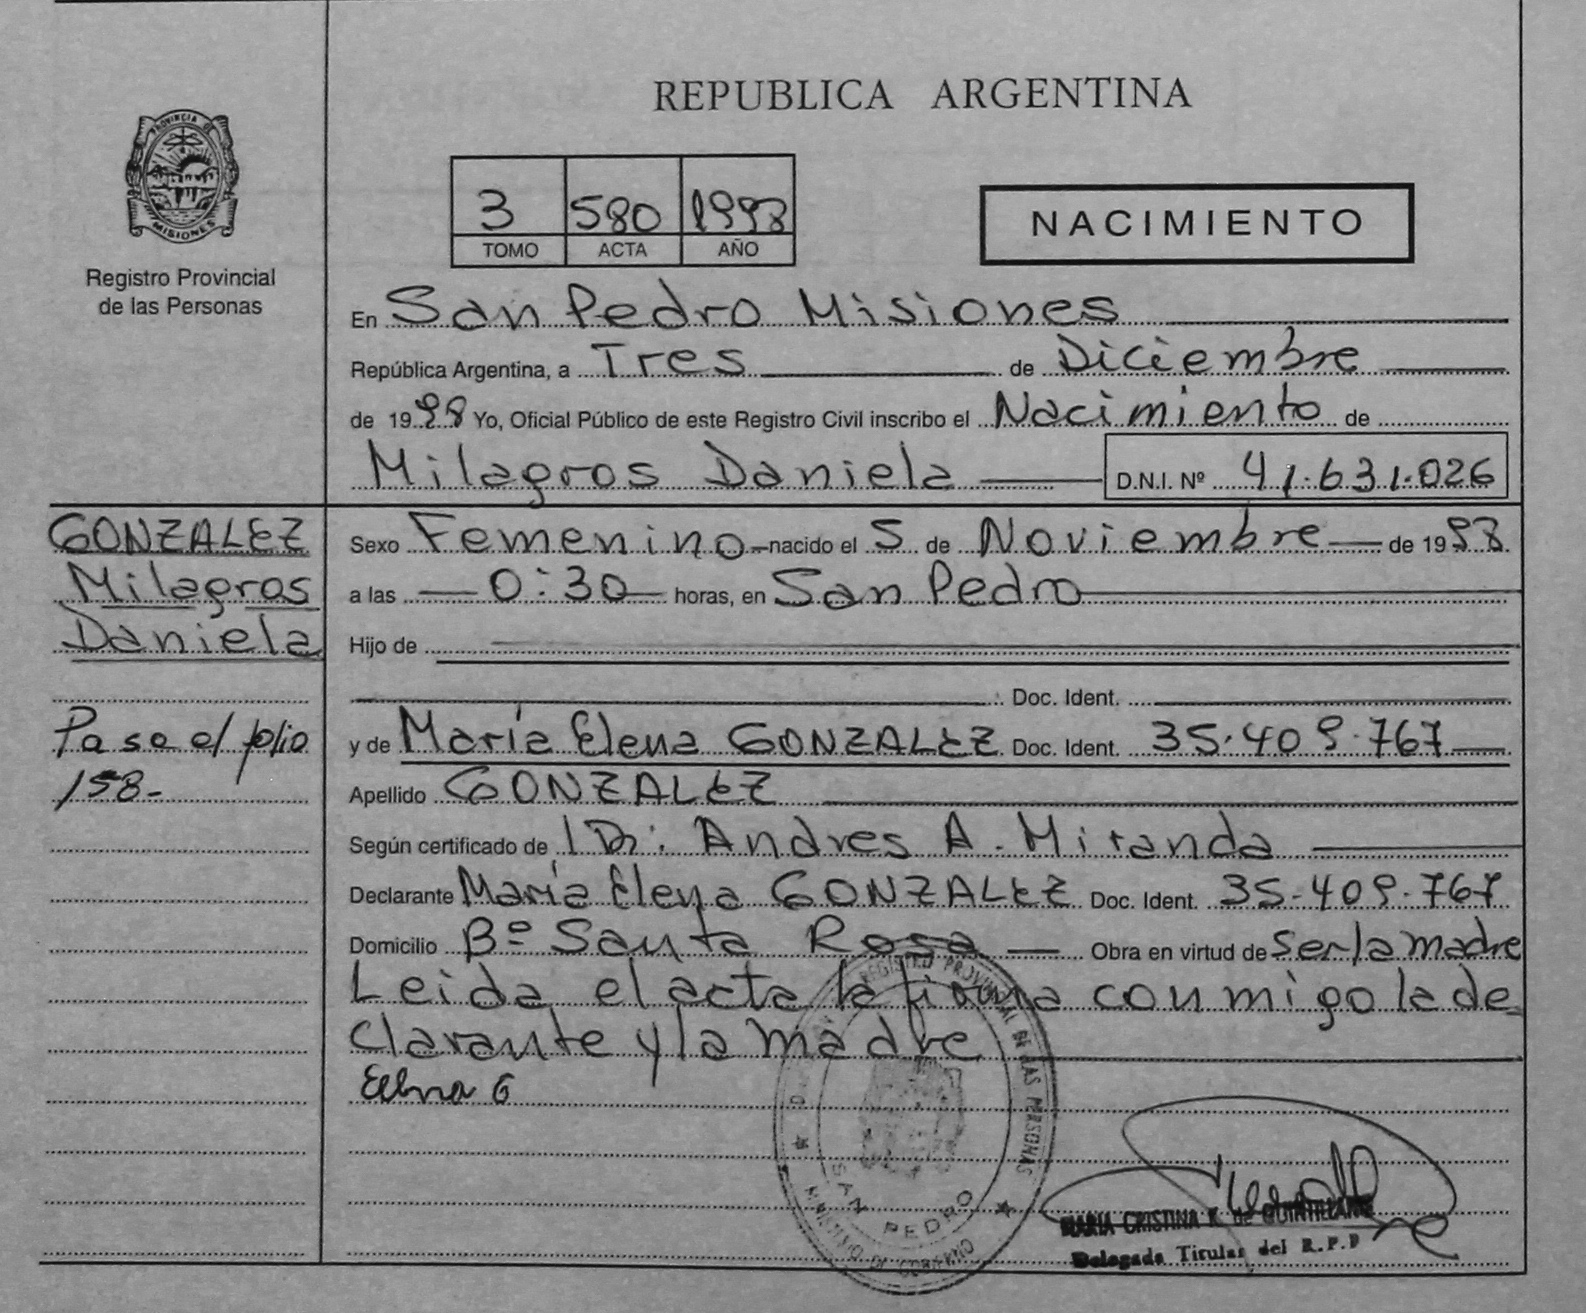 REPUBLICA ARGENTINA
PROVINCIA DE
MISIONES
Registro Provincial
de las Personas
3 580 1998
TOMO ACTA AÑO
NACIMIENTO
En San Pedro Misiones
República Argentina, a Tres de Diciembre
de 1998 Yo, Oficial Público de este Registro Civil inscribo el Nacimiento de
Milagros Daniela D.N.I. Nº 41.631.026
GONZALEZ
Milagros
Daniela
Pasa al folio
158-
Sexo Femenino nacido el 5 de Noviembre de 1998
a las 0:30 horas, en San Pedro
Hijo de
Doc. Ident.
y de María Elena GONZALEZ Doc. Ident. 35.409.767
Apellido GONZALEZ
Según certificado de Dr. Andres A. Miranda
Declarante María Elena GONZALEZ Doc. Ident. 35.409.767
Domicilio Bº Santa Rosa Obra en virtud de ser la madre
Leida el acta la firma conmigo la de
clarante y la madre
REGISTRO PROVINCIAL DE LAS PERSONAS
SAN PEDRO
MINISTERIO DE GOBIERNO
MARIA CRISTINA K. de QUINTILLANE
Delegada Titular del R.P.P